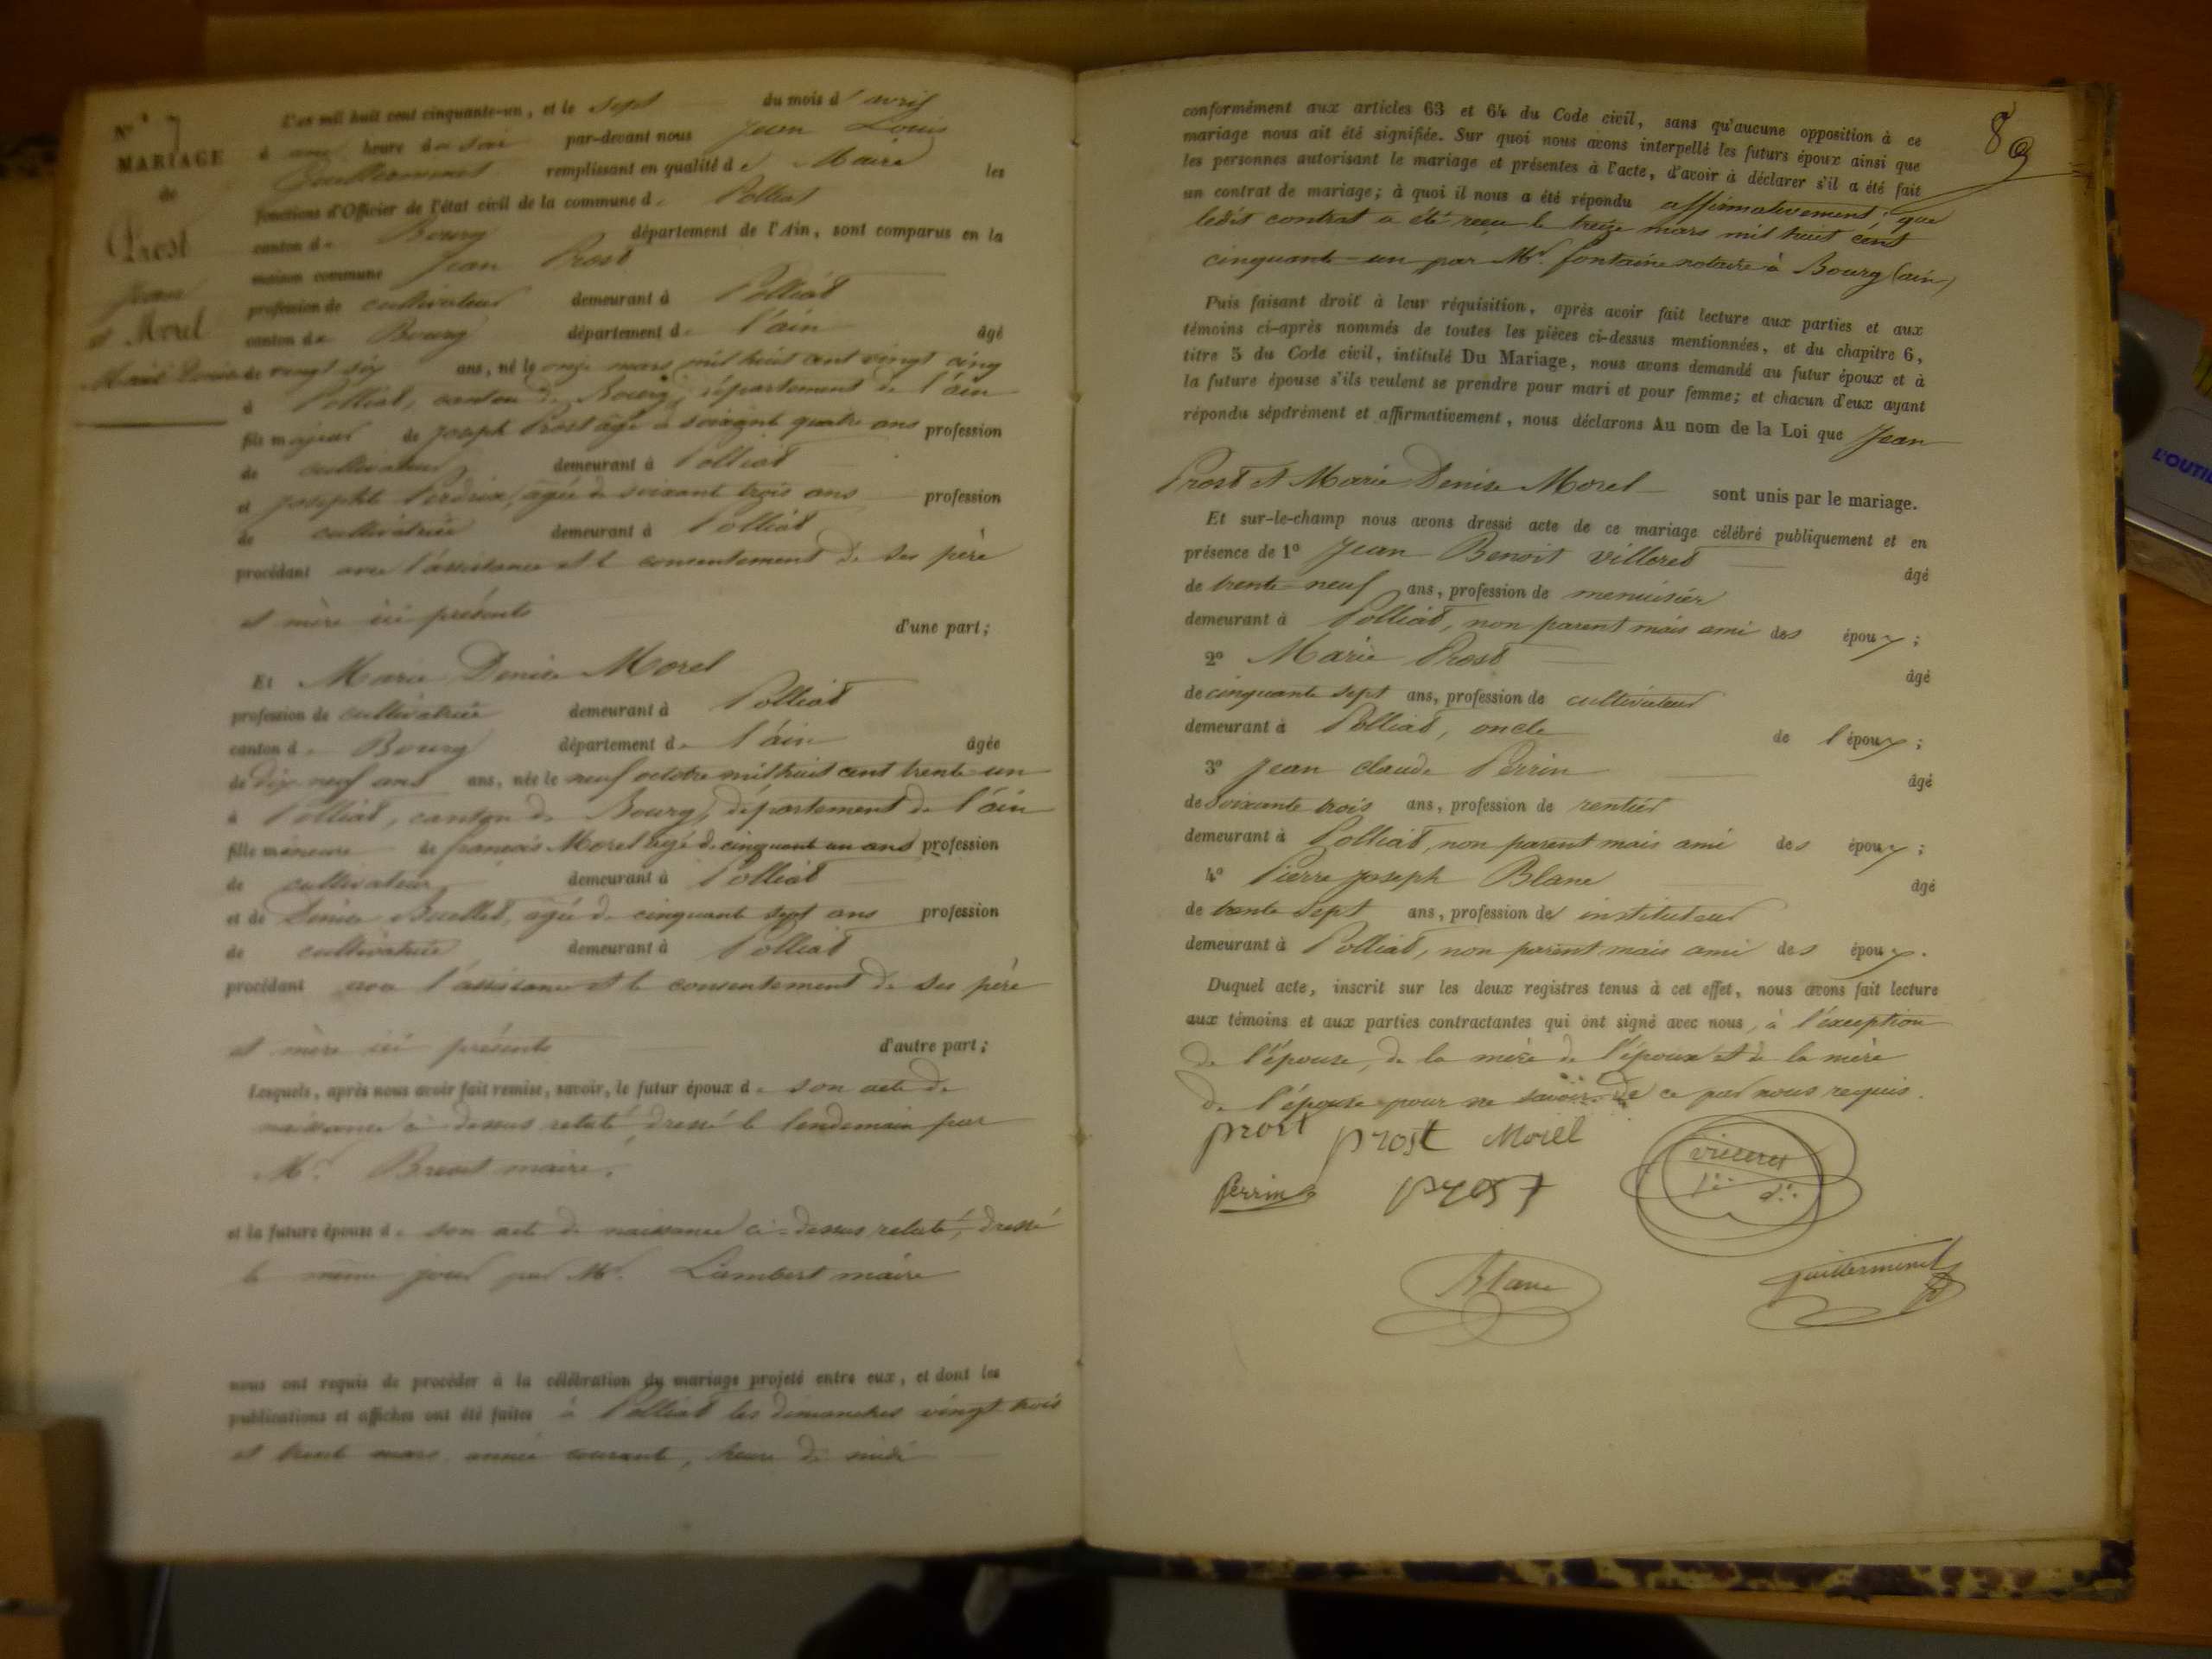 N° 7
MARIAGE
de
Prost
Jean
et Morel
Marie Denise
L'an mil huit cent cinquante-un, et le sept du mois d'avril
à une heure du soir par-devant nous Jean Louis
Guillerminet remplissant en qualité de Maire les
fonctions d'Officier de l'état civil de la commune de Polliat
canton de Bourg département de l'Ain, sont comparus en la
maison commune Jean Prost
profession de cultivateur demeurant à Polliat
canton de Bourg département de l'ain âgé
de vingt six ans, né le onze mars mil huit cent vingt cinq
à Polliat, canton de Bourg, département de l'ain
fils majeur de Joseph Prost âgé de soixante quatre ans profession
de cultivateur demeurant à Polliat
et Josephte Perdrix, âgée de soixant trois ans profession
de cultivatrice demeurant à Polliat
procédant avec l'assistance et le consentement de ses père
et mère ici présents d'une part;
Et Marie Denise Morel
profession de cultivatrice demeurant à Polliat
canton de Bourg département de l'ain âgée
de dix neuf ans ans, née le neuf octobre mil huit cent trente un
à Polliat, canton de Bourg, département de l'ain
fille mineure de françois Morel âgé de cinquant un ans profession
de cultivateur demeurant à Polliat
et de Denise Buellet, âgée de cinquant sept ans profession
de cultivatrice demeurant à Polliat
procédant avec l'assistance et le consentement de ses père
et mère ici présents d'autre part;
Lesquels, après nous avoir fait remise, savoir, le futur époux de son acte de
naissance ci-dessus relaté, dressé le lendemain par
Mr. maire.
et la future épouse de son acte de naissance ci-dessus relaté, dressé
le même jour par Mr. Lambert maire
nous ont requis de procéder à la célébration du mariage projeté entre eux, et dont les
publications et affiches ont été faites à Polliat les dimanches vingt trois
et trente mars année courante, heure de midi
8
conformément aux articles 63 et 64 du Code civil, sans qu'aucune opposition à ce
mariage nous ait été signifiée. Sur quoi nous avons interpellé les futurs époux ainsi que
les personnes autorisant le mariage et présentes à l'acte, d'avoir à déclarer s'il a été fait
un contrat de mariage; à quoi il nous a été répondu affirmativement; que
ledit contrat a été reçu le treize mars mil huit cent
cinquante-un par Mr. fontaine notaire à Bourg (ain)
Puis faisant droit à leur réquisition, après avoir fait lecture aux parties et aux
témoins ci-après nommés de toutes les pièces ci-dessus mentionnées, et du chapitre 6,
titre 5 du Code civil, intitulé Du Mariage, nous avons demandé au futur époux et à
la future épouse s'ils veulent se prendre pour mari et pour femme; et chacun d'eux ayant
répondu séparément et affirmativement, nous déclarons Au nom de la Loi que Jean
Prost et Marie Denise Morel sont unis par le mariage.
Et sur-le-champ nous avons dressé acte de ce mariage célébré publiquement et en
présence de 1° Jean Benoit Villeret âgé
de trente-neuf ans, profession de menuisier
demeurant à Polliat, non parent mais ami des époux;
2° Marie Prost âgé
de cinquante sept ans, profession de cultivateur
demeurant à Polliat, oncle de l'époux;
3° Jean Claude Perrin âgé
de soixante trois ans, profession de rentier
demeurant à Polliat, non parent mais ami des époux;
4° Pierre Joseph Blanc âgé
de trente sept ans, profession de instituteur
demeurant à Polliat, non parent mais ami des époux.
Duquel acte, inscrit sur les deux registres tenus à cet effet, nous avons fait lecture
aux témoins et aux parties contractantes qui ont signé avec nous, à l'exception
de l'épouse, de la mère de l'époux et de la mère
de l'épouse pour ne savoir de ce par nous requis.
prost prost Morel
Villeret
Perrin prost
Blanc Guillerminet
L'OUTIL